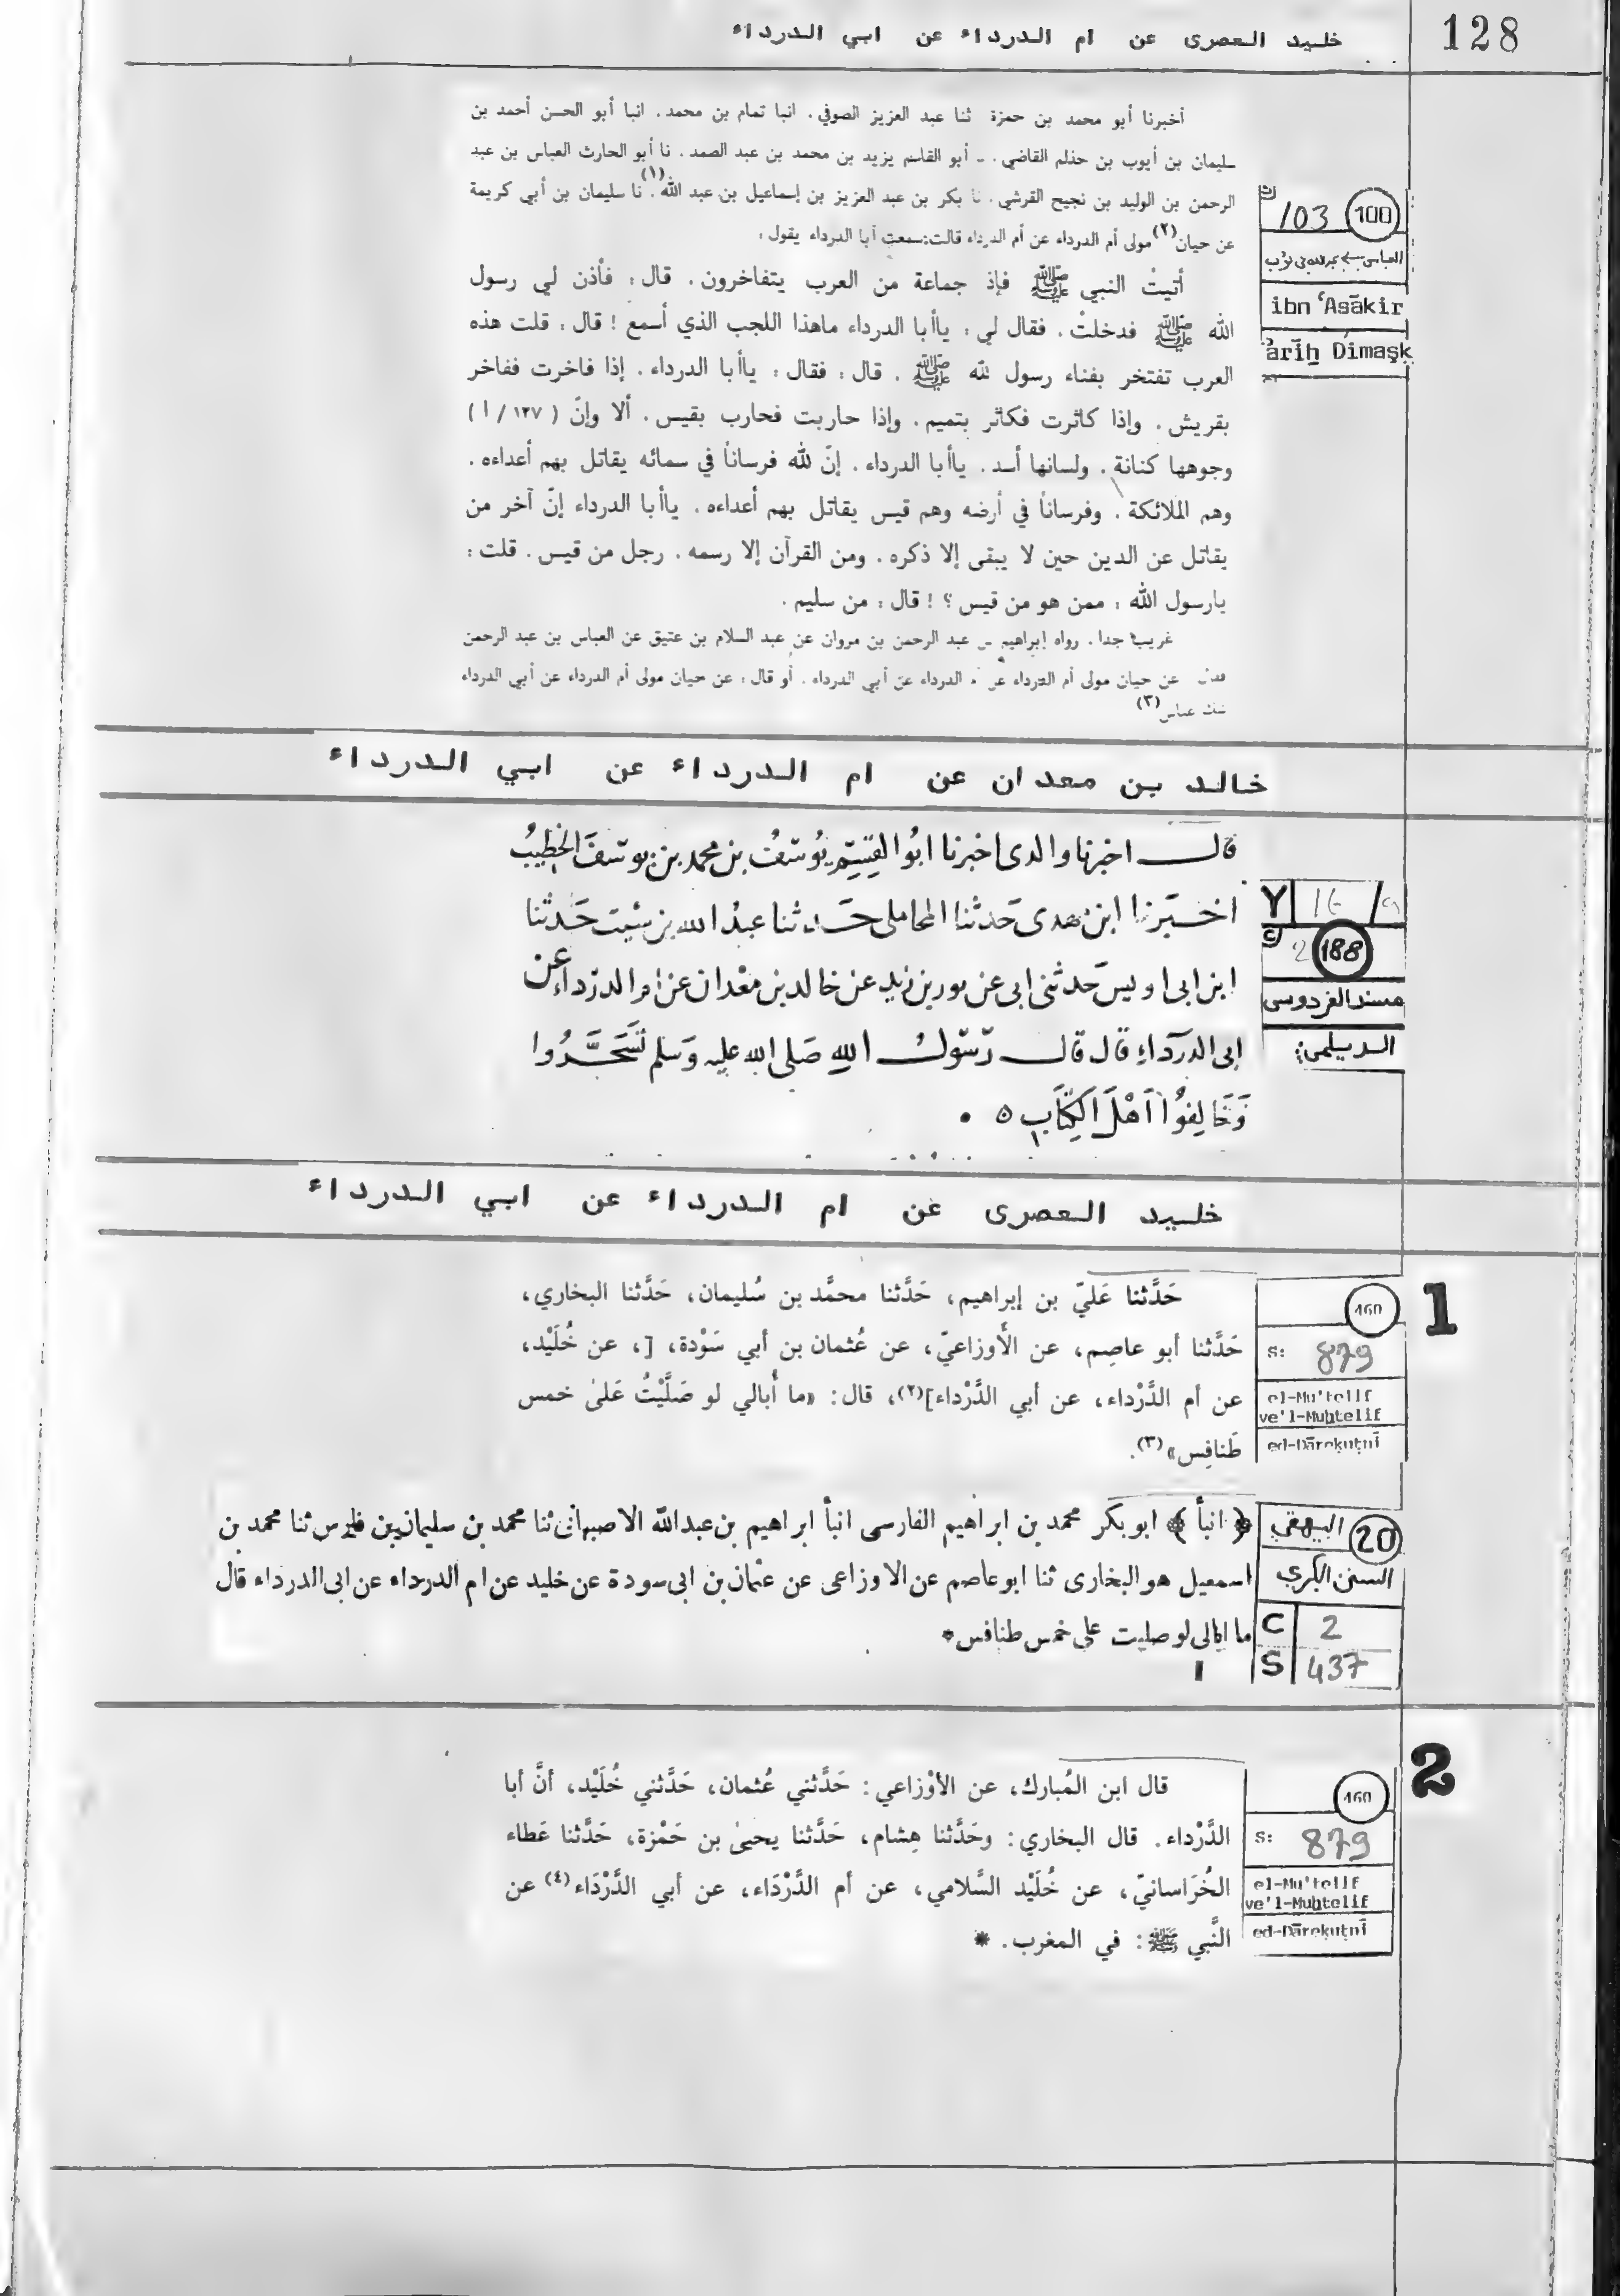 128
خليد العصرى عن ام الدرداء عن ابي الدرداء
أخبرنا أبو محمد بن حمزة ثنا عبد العزيز الصوفي. انبا تمام بن محمد. انبا أبو الحسن أحمد بن
سليمان بن أيوب بن حذلم القاضي. أبو القاسم يزيد بن محمد بن عبد الصمد. نا أبو الحارث العباس بن عبد
الرحمن بن الوليد بن نجيح القرشي. نا بكر بن عبد العزيز بن إسماعيل بن عبد الله(١). نا سليمان بن أبي كريمة
عن حيان(٢) مولى أم الدرداء عن أم الدرداء قالت: سمعت أبا الدرداء يقول:
أتيتُ النبي ﷺ فإذ جماعة من العرب يتفاخرون. قال: فأذن لي رسول
الله ﷺ فدخلتْ. فقال لي: ياأبا الدرداء ماهذا اللجب الذي أسمع! قال: قلت هذه
العرب تفتخر بفناء رسول لله ﷺ. قال: فقال: ياأبا الدرداء. إذا فاخرت ففاخر
بقريش. وإذا كاثرت فكاثر بتميم. وإذا حاربت فحارب بقيس. ألا وإنّ (١٢٧/أ)
وجوهها كنانة. ولسانها أسد. ياأبا الدرداء. إنّ لله فرساناً في سمائه يقاتل بهم أعداءه.
وهم الملائكة. وفرساناً في أرضه وهم قيس يقاتل بهم أعداءه. ياأبا الدرداء إنّ آخر من
يقاتل عن الدين حين لا يبقى إلا ذكره. ومن القرآن إلا رسمه. رجل من قيس. قلت:
يارسول الله: ممن هو من قيس؟! قال: من سليم.
غريب جدا. رواه إبراهيم عبد الرحمن بن مروان عن عبد السلام بن عتيق عن العباس بن عبد الرحمن
عن حيان مولى أم الدرداء الدرداء عن أبي الدرداء. أو قال: عن حيان مولى أم الدرداء عن أبي الدرداء
عباس(٣)
100 103
ibn ʿAsākir
ārīḫ Dimaşḳ
خالد بن معدان عن ام الدرداء عن ابي الدرداء
قال اخبرنا والدى اخبرنا ابوُا القسِمِ يوُسُفُ بن محمد بن يوسَفَ الخطيبُ
اخبَرنا ابن مهدى حَدثنا المحاملى حَدثنا عبدُ الله بن شبيَت حَدثنا
ابن ابى اويس حَدثنى ابى عن ثور بن زيد عن خالد بن معْدان عن ام الدرَداء عن
ابى الدرَداءِ قال قال رسُول اللهِ صَلى الله عليه وَسلم تَسَحَّرُوا
وَخَالِفوُا اهَلَ الكِتَابِ ٥
Y 188
مسند الفردوسى
الديلمى:
خليد العصرى عن ام الدرداء عن ابي الدرداء
1
حَدَّثنا عَليّ بن إبراهيم، حَدَّثنا محمَّد بن سُليمان، حَدَّثنا البخاري،
حَدَّثنا أبو عاصِم، عن الأَوزاعيّ، عن عُثمان بن أبي سَوْدة، [، عن خُلَيْد،
عن أم الدَّرْداء، عن أبي الدَّرْداء](٢)، قال: «ما أُبالي لو صَلَّيْتُ عَلىٰ خمس
طَنافِس»(٣).
160
s: 879
el-Mu'telif
ve'l-Muḫtelif
ed-Dāreḳuṭnī
﴿ انبأ ﴾ ابو بكر محمد بن ابراهيم الفارسى انبأ ابراهيم بن عبد الله الاصبهانى ثنا محمد بن سليمان بن فارس ثنا محمد بن
اسمعيل هو البخارى ثنا ابو عاصم عن الاوزاعى عن عثمان بن ابى سودة عن خليد عن ام الدرداء عن ابى الدرداء قال
ما ابالى لو صليت على خمس طنافس*
البيهقي 20
السنن الكبري
C 2
S 437
2
قال ابن المُبارك، عن الأوْزاعي: حَدَّثني عُثمان، حَدَّثني خُلَيْد، أنَّ أبا
الدَّرْداء. قال البخاري: وحَدَّثنا هِشام، حَدَّثنا يحيىٰ بن حَمْزة، حَدَّثنا عَطاء
الخُرَاسانيّ، عن خُلَيْد السَّلامي، عن أم الدَّرْدَاء، عن أبي الدَّرْدَاء(٤) عن
النَّبي ﷺ: في المغرب. *
160
s: 879
el-Mu'telif
ve'l-Muḫtelif
ed-Dāreḳuṭnī